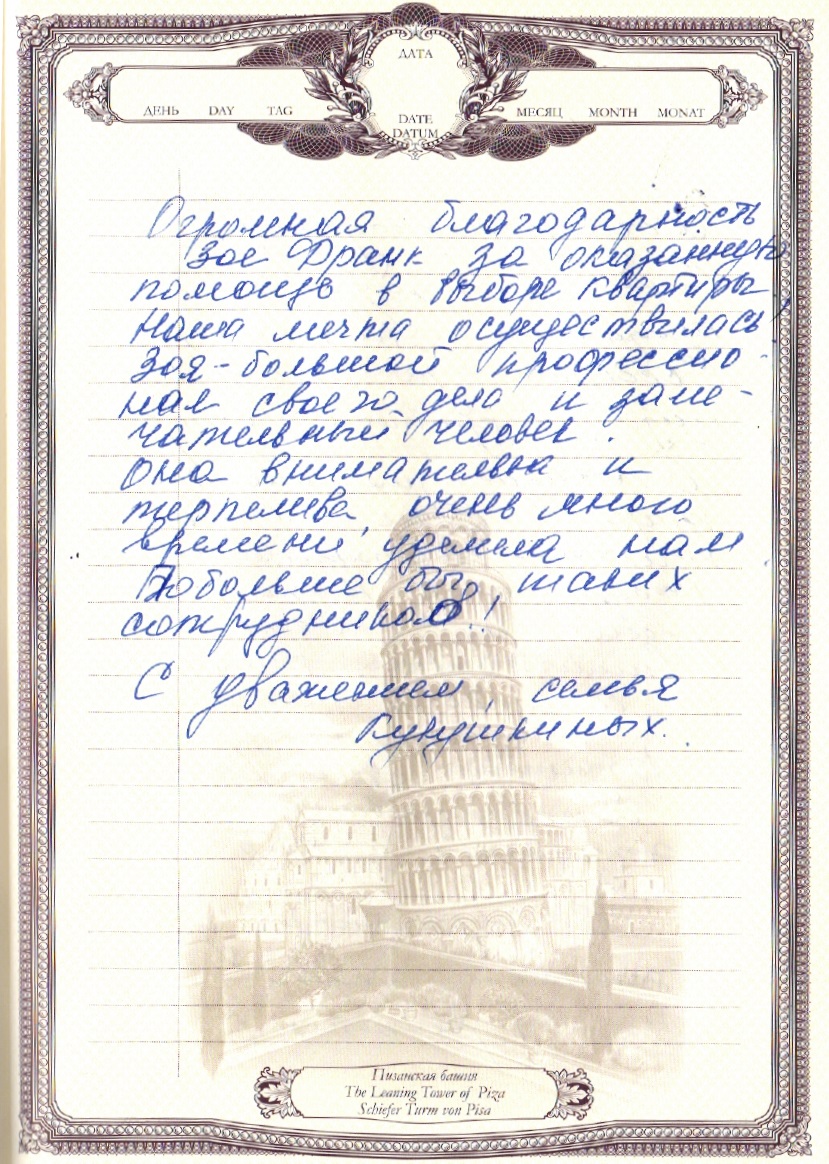 ДАТА
ДЕНЬ DAY TAG
DATE
DATUM
МЕСЯЦ MONTH MONAT
Огромная благодарность
Зое Франк за оказанную
помощь в выборе квартиры.
Наша мечта осуществилась!
Зоя-большой професcио-
нал своего дела и заме-
чательный человек.
Она внимательна и
терпелива, очень много
времени уделила нам.
Побольше бы таких
сотрудников!
С уважением, семья
Кукушкиных.
Пизанская башня
The Leaning Tower of Piza
Schiefer Turm von Pisa